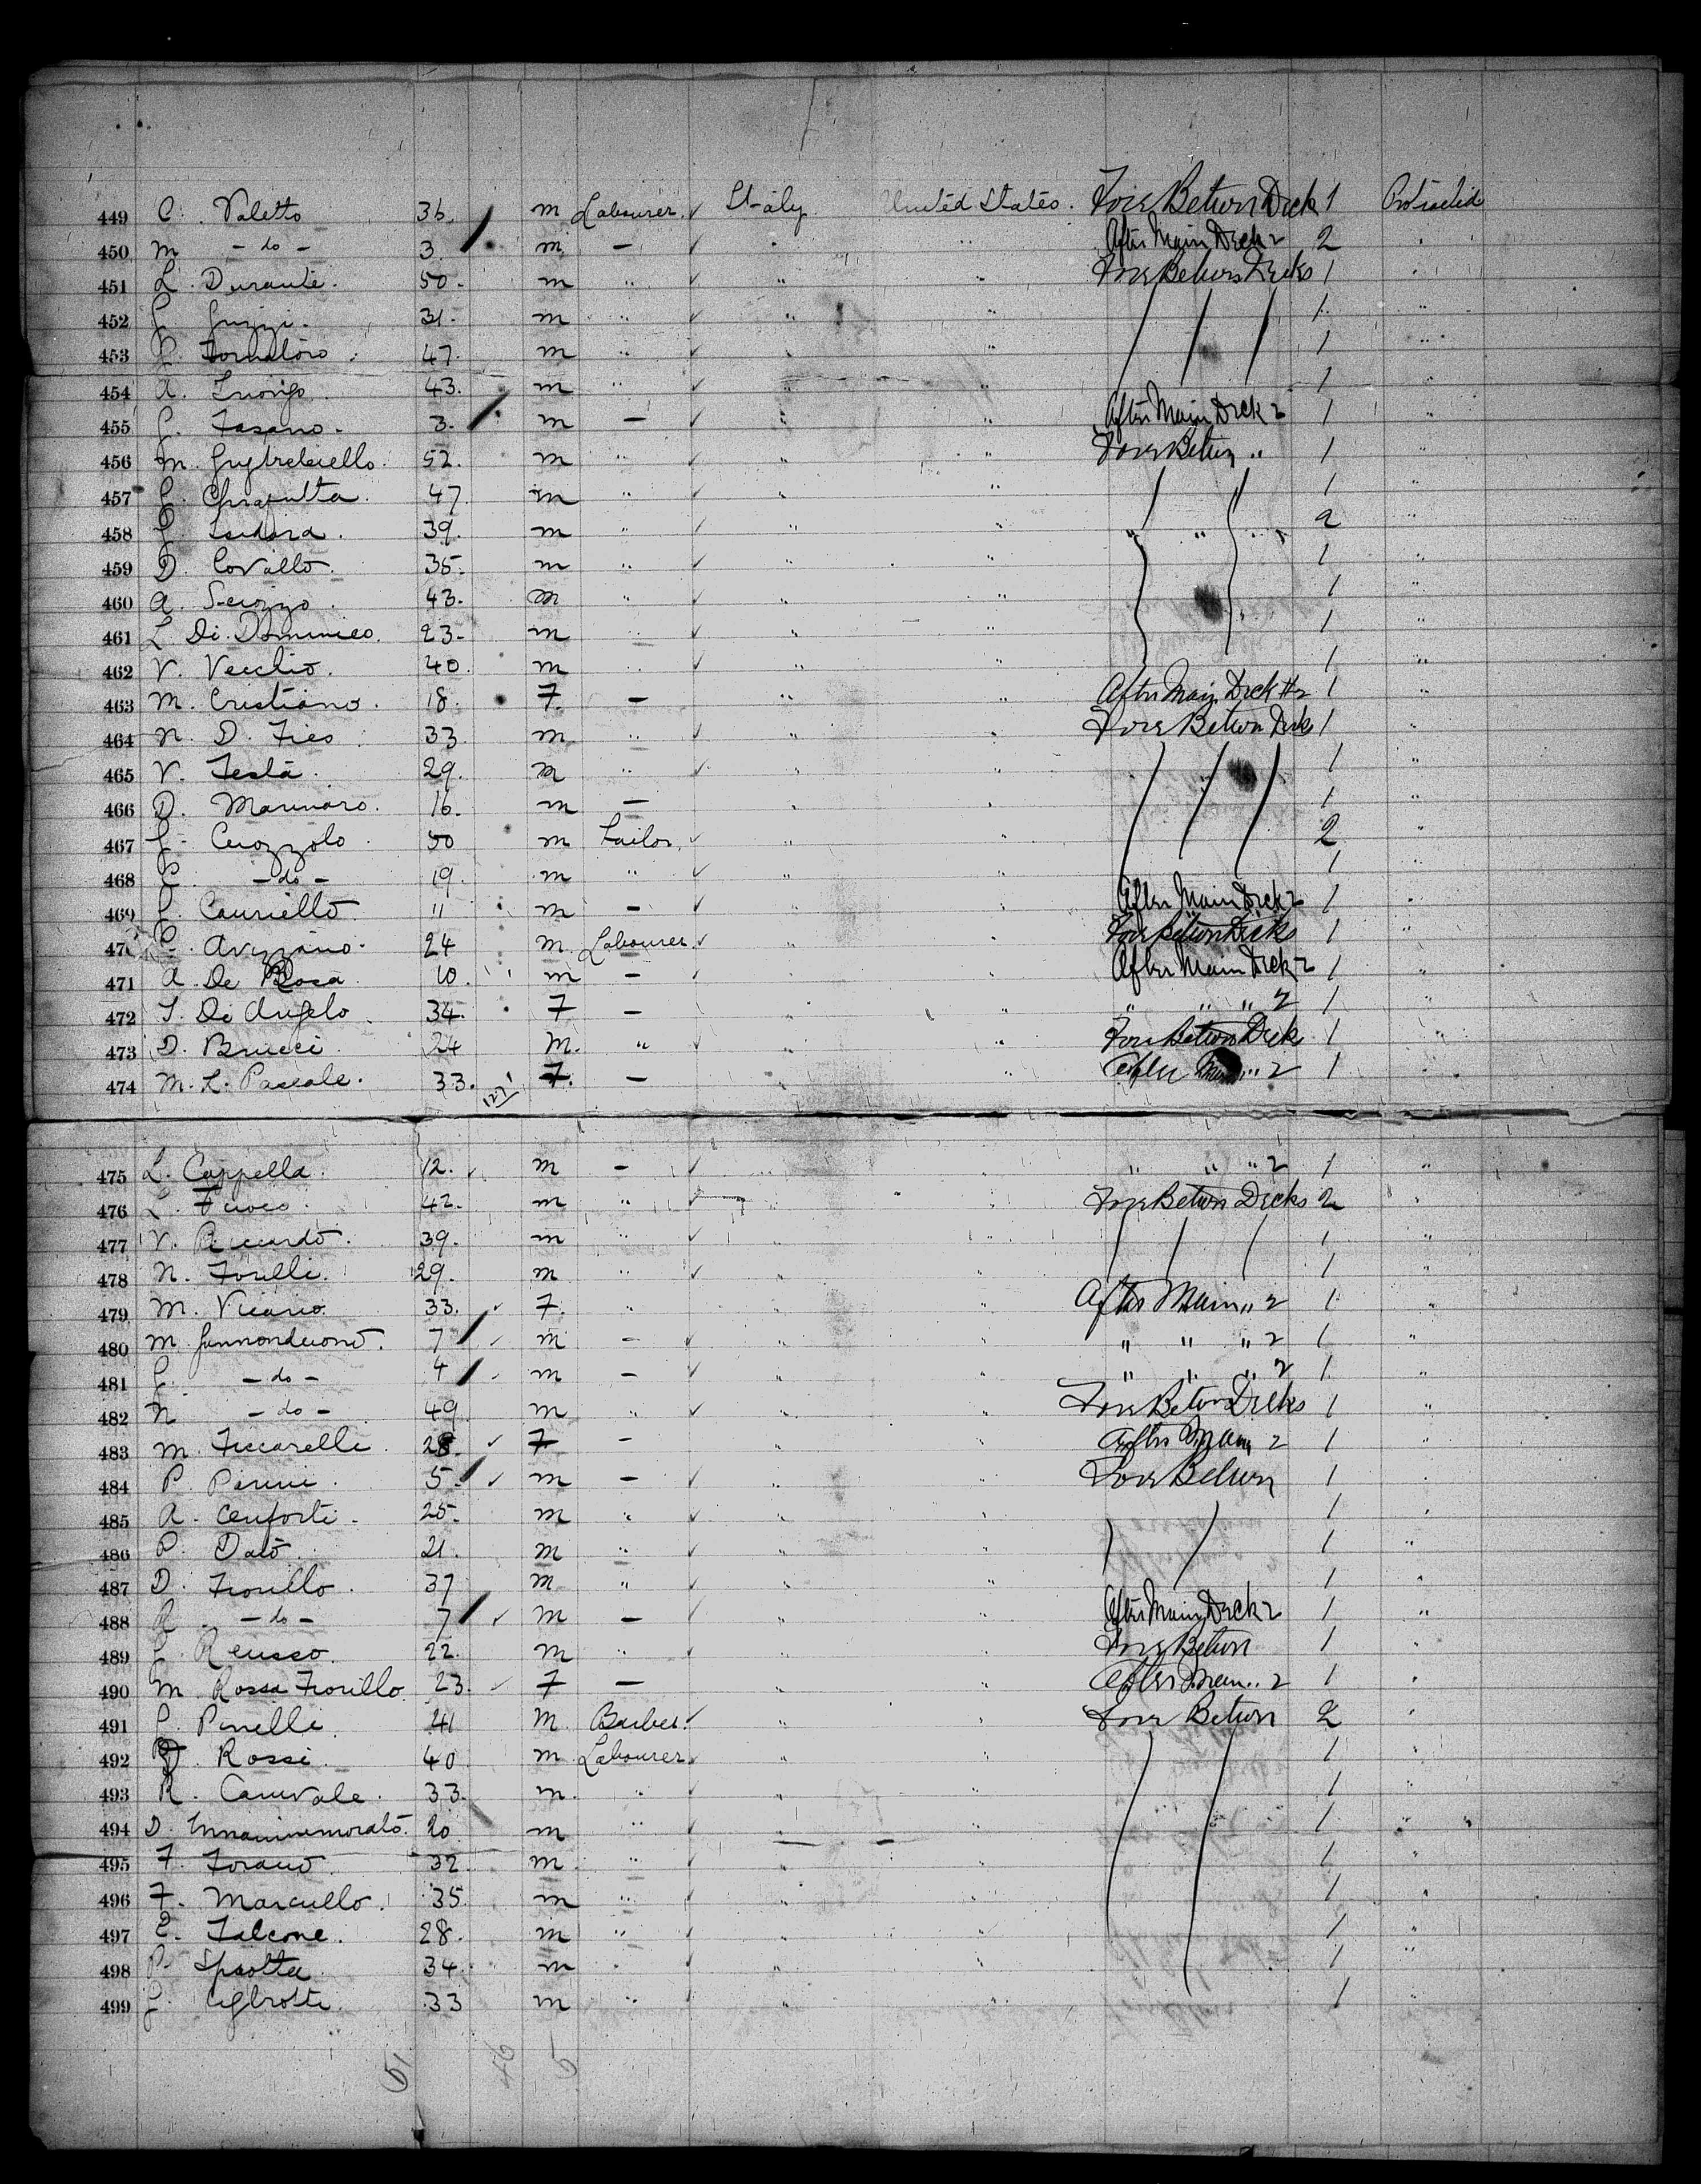 449 C. Valetto 36. m Labourer. ✓ Italy United States. Fore Betwn Deck 1 Protracted
450 m - do - 3. m - ✓ " " After Main Deck 2 2 "
451 L. Durante. 50. m " ✓ " " Fore Betwn Decks 1 "
452 G. 31. m " ✓ " " 1 "
453 47. m " ✓ " " 1 "
454 A. 43. m " ✓ " " 1 "
455 G. Fasano. 3. m - ✓ " " After Main Deck 2 1 "
456 M. 52. m " ✓ " " Fore Betwn " 1 "
457 G. 47. m " ✓ " " 1 "
458 G. Isidora. 39. m " ✓ " " " " " 2 "
459 D. Covallo. 35. m " ✓ " " 1 "
460 A. 43. m " ✓ " " 1 "
461 L. Di Dominico. 23. m " ✓ " " 1 "
462 V. Vecchio. 40. m " ✓ " " 1 "
463 M. Cristiano. 18. F. - " " After Main Deck #2 1 "
464 N. D. 33. m " ✓ " " Fore Betwn Deks 1 "
465 V. Testa. 29. m " ✓ " " 1 "
466 D. Marinaro. 16. m - " " 1 "
467 G. Cerozzolo. 50 m Tailor. ✓ " " 2 "
468 C. - do - 19. m " ✓ " " 1 "
469 Cauriello. 11 m - ✓ " " After Main Deck 2 1 "
470 Avizzano. 24 m. Labourer ✓ " " Fore Betwn Decks 1 "
471 A. De Rosa. 10. m - ✓ " " After Main Deck 2 1 "
472 Di Angelo. 34. F - " " " " " 2 1 "
473 D. Brucci. 24 M. " ✓ " " Fore Betwn Deck 1 "
474 M. L. Pascale. 33. F. - " " After Main " 2 1 "
475 L. Cappella. 12. ✓ m - ✓ " " " " " 2 1 "
476 L. Fuoco. 42. m " ✓ " " Fore Betwn Decks 2 "
477 V. Riccardo. 39. m " ✓ " " 1 "
478 N. 29. m " ✓ " " 1 "
479 M. Vicario. 33. ✓ F. " " " After Main " 2 1 "
480 M. 7 ✓ m - ✓ " " " " " 2 1 "
481 G. - do - 4 ✓ m - ✓ " " " " " 2 1. "
482 N - do - 49. m " ✓ " " Fore Betwn Decks 1 "
483 M. 28. ✓ F - " " After Main 2 1 "
484 P. 5. ✓ m - ✓ " " Fore Betwn 1 "
485 A. Cenforti. 25. m " ✓ " " 1 "
486 P. Dato. 21. m " ✓ " " 1 "
487 D. Fiorillo. 37 m " ✓ " " 1 "
488 - do - 7 ✓ m - ✓ " " After Main Deck 2 1 "
489 G. Reusso. 22. m " ✓ " " Fore Betwn 1 "
490 M. Rossa Fiorillo 23. ✓ F - " " After Main " 2 1 "
491 G. Pinelli 41 m. Barber. ✓ " " Fore Betwn 2 "
492 Rossi. 40. m. Labourer. ✓ " " 1 "
493 R. Carnvale. 33. m. " ✓ " " 1 "
494 D. Innaminemorato. 20. m " ✓ " " 1 "
495 F. 32. m. " ✓ " " 1 "
496 F. Marcullo. 35. m " ✓ " " 1 "
497 E. Falcone. 28. m " ✓ " " 1 "
498 P. 34. m " ✓ " " 1 "
499 G. 33 m " ✓ " " 1 "
51 46 5